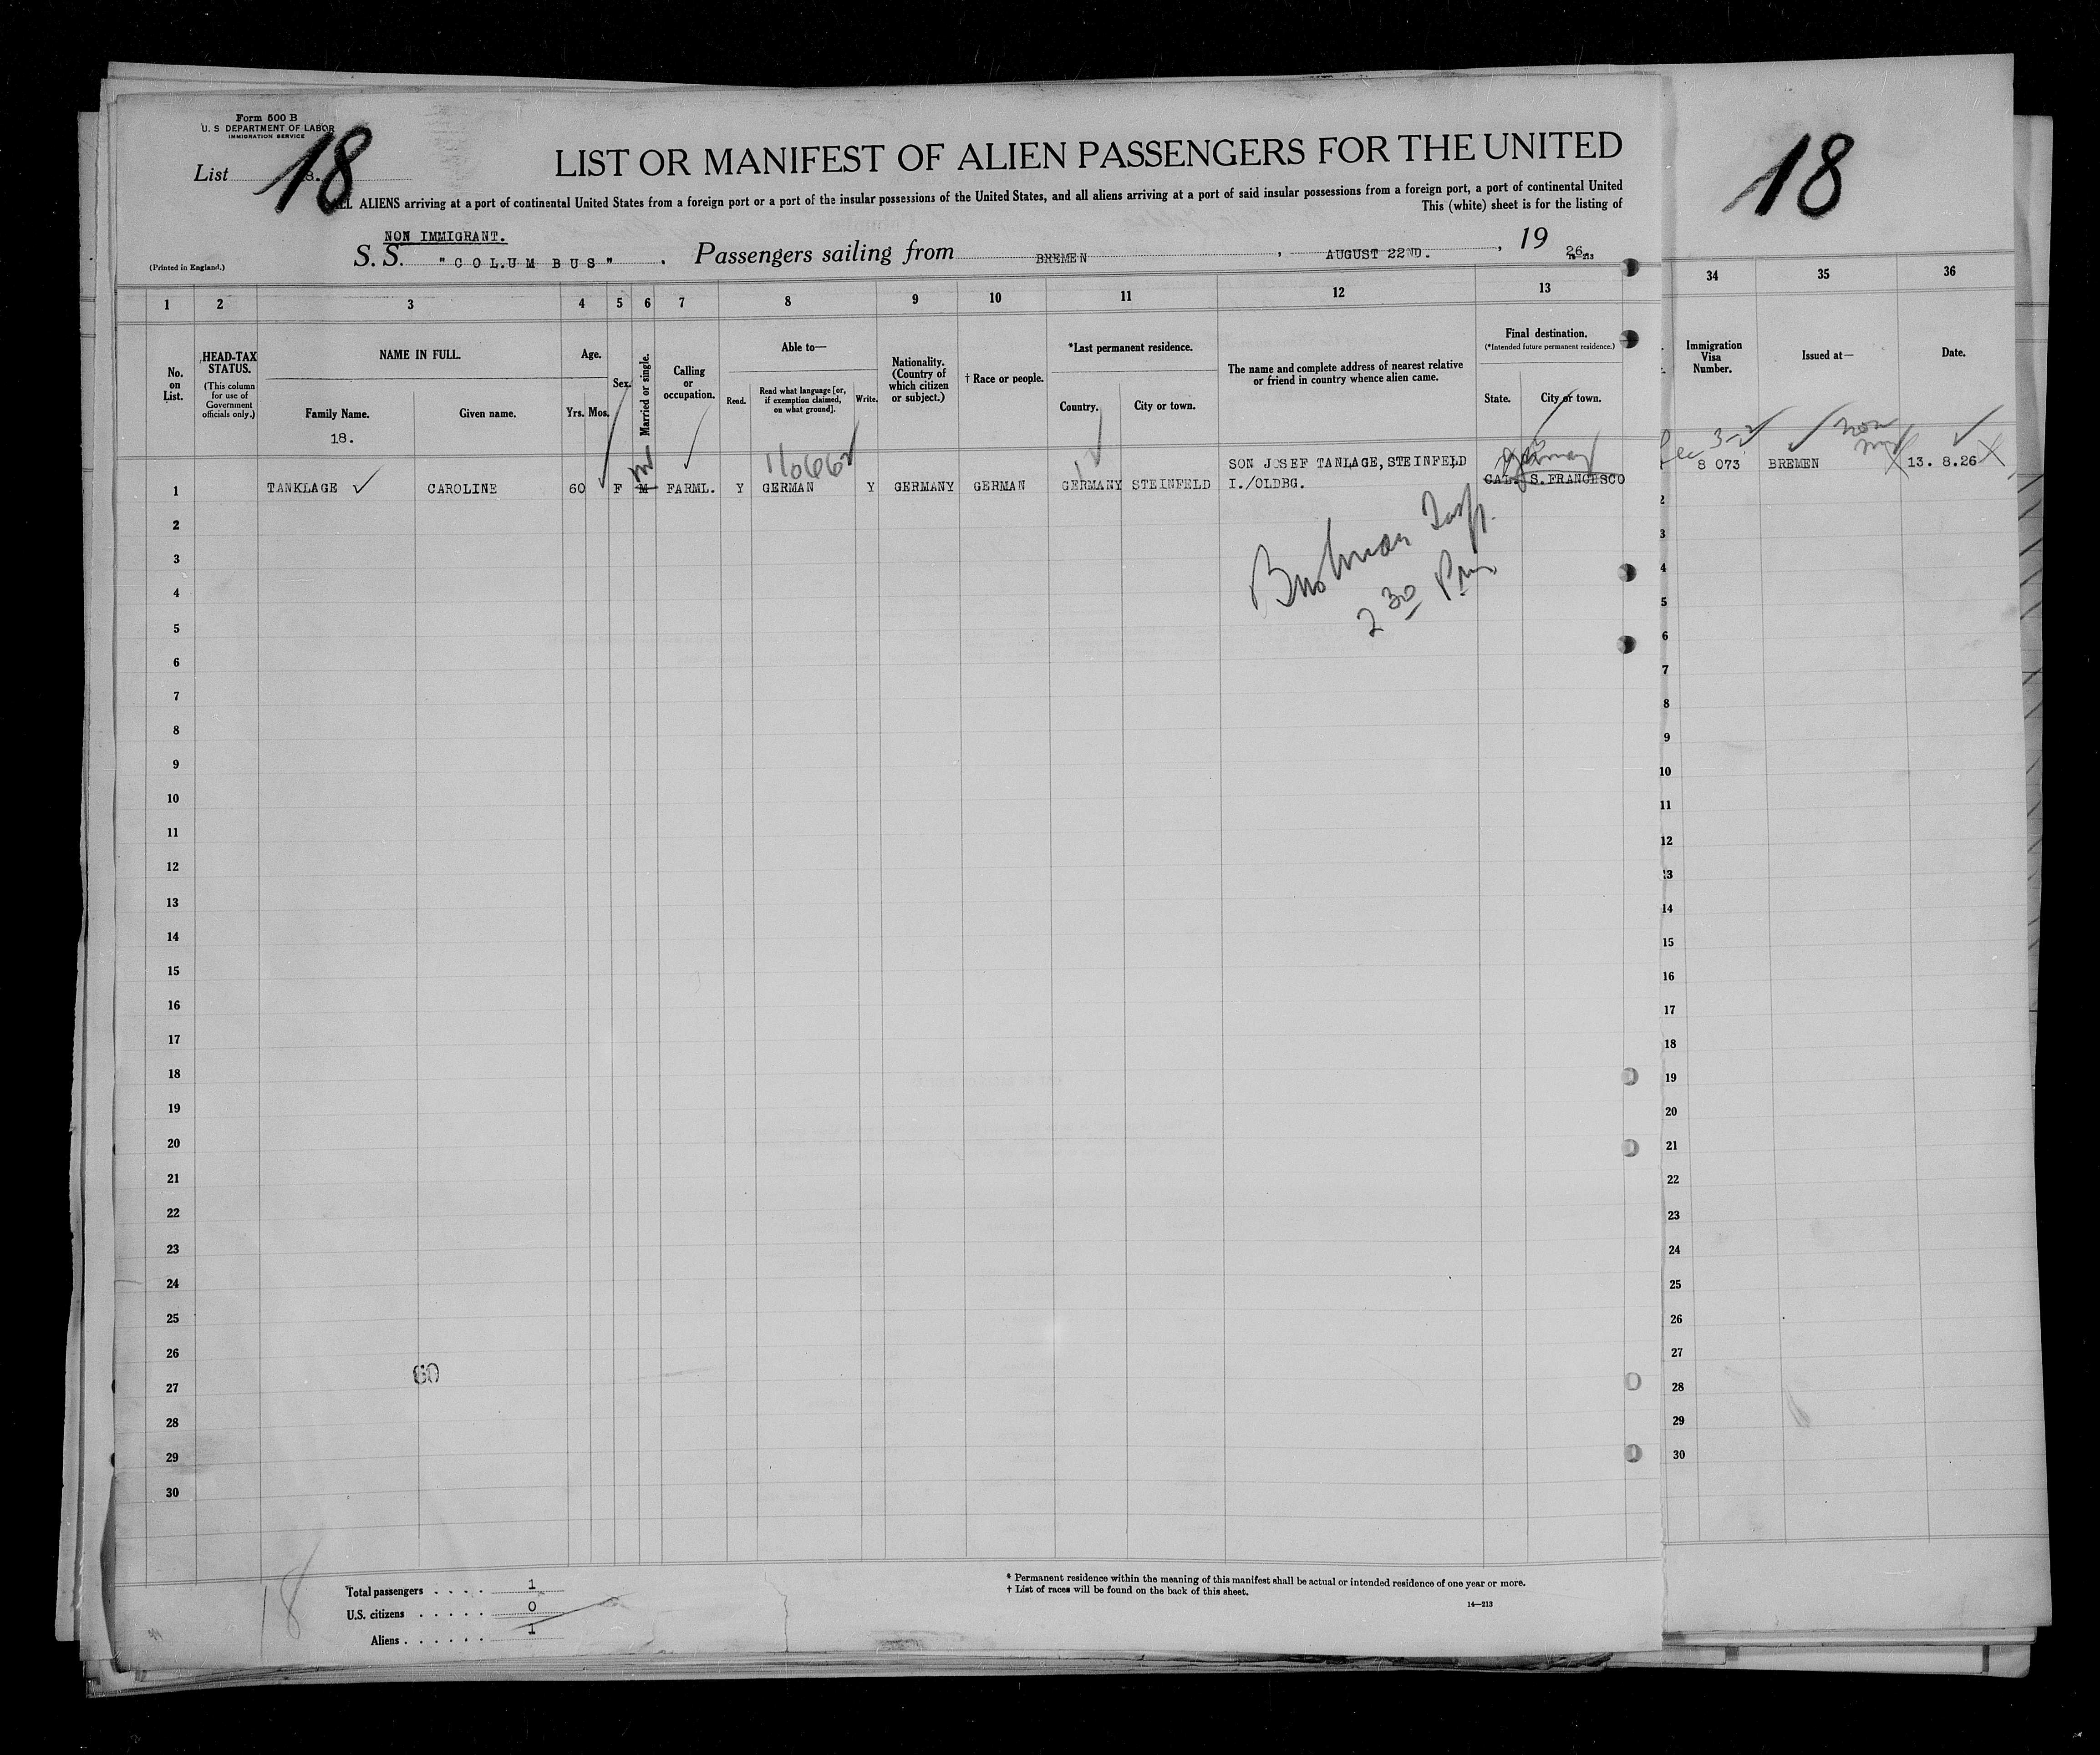 Form 500 B
U. S DEPARTMENT OF LABOR
IMMIGRATION SERVICE
List 18.
18
18
LIST OR MANIFEST OF ALIEN PASSENGERS FOR THE UNITED
ALIENS arriving at a port of continental United States from a foreign port or a port of the insular possessions of the United States, and all aliens arriving at a port of said insular possessions from a foreign port, a port of continental United
This (white) sheet is for the listing of
NON IMMIGRANT.
S. S. "COLUMBUS" . Passengers sailing from BREMEN , AUGUST 22ND. , 19 26
(Printed in England.)
1 2 3 4 5 6 7 8 9 10 11 12 13 34 35 36
No. on List.
HEAD-TAX STATUS.
(This column for use of Government officials only.)
NAME IN FULL.
Family Name.
Given name.
18.
Age.
Yrs. Mos.
Sex.
Married or single.
Calling or occupation.
Able to—
Read.
Read what language [or, if exemption claimed, on what ground].
Write.
Nationality. (Country of which citizen or subject.)
† Race or people.
*Last permanent residence.
Country.
City or town.
The name and complete address of nearest relative or friend in country whence alien came.
Final destination.
(*Intended future permanent residence.)
State.
City or town.
Immigration Visa Number.
Issued at—
Date.
3-2
non
Germany
1 TANKLAGE ✓ CAROLINE 60 F M FARML. Y GERMAN Y GERMANY GERMAN GERMANY STEINFELD SON JOSEF TANLAGE, STEINFELD I./OLDBG. CAL. S.FRANCESCO 8 073 BREMEN 13. 8.26
M
2 30 Pm
2
3
4
5
6
7
8
9
10
11
12
13
14
15
16
17
18
19
20
21
22
23
24
25
26
27
28
29
30
2
3
4
5
6
7
8
9
10
11
12
13
14
15
16
17
18
19
20
21
22
23
24
25
26
27
28
29
30
60
18
Total passengers . . . . 1
U.S. citizens . . . . . 0
Aliens . . . . . . 1
* Permanent residence within the meaning of this manifest shall be actual or intended residence of one year or more.
† List of races will be found on the back of this sheet.
14—213